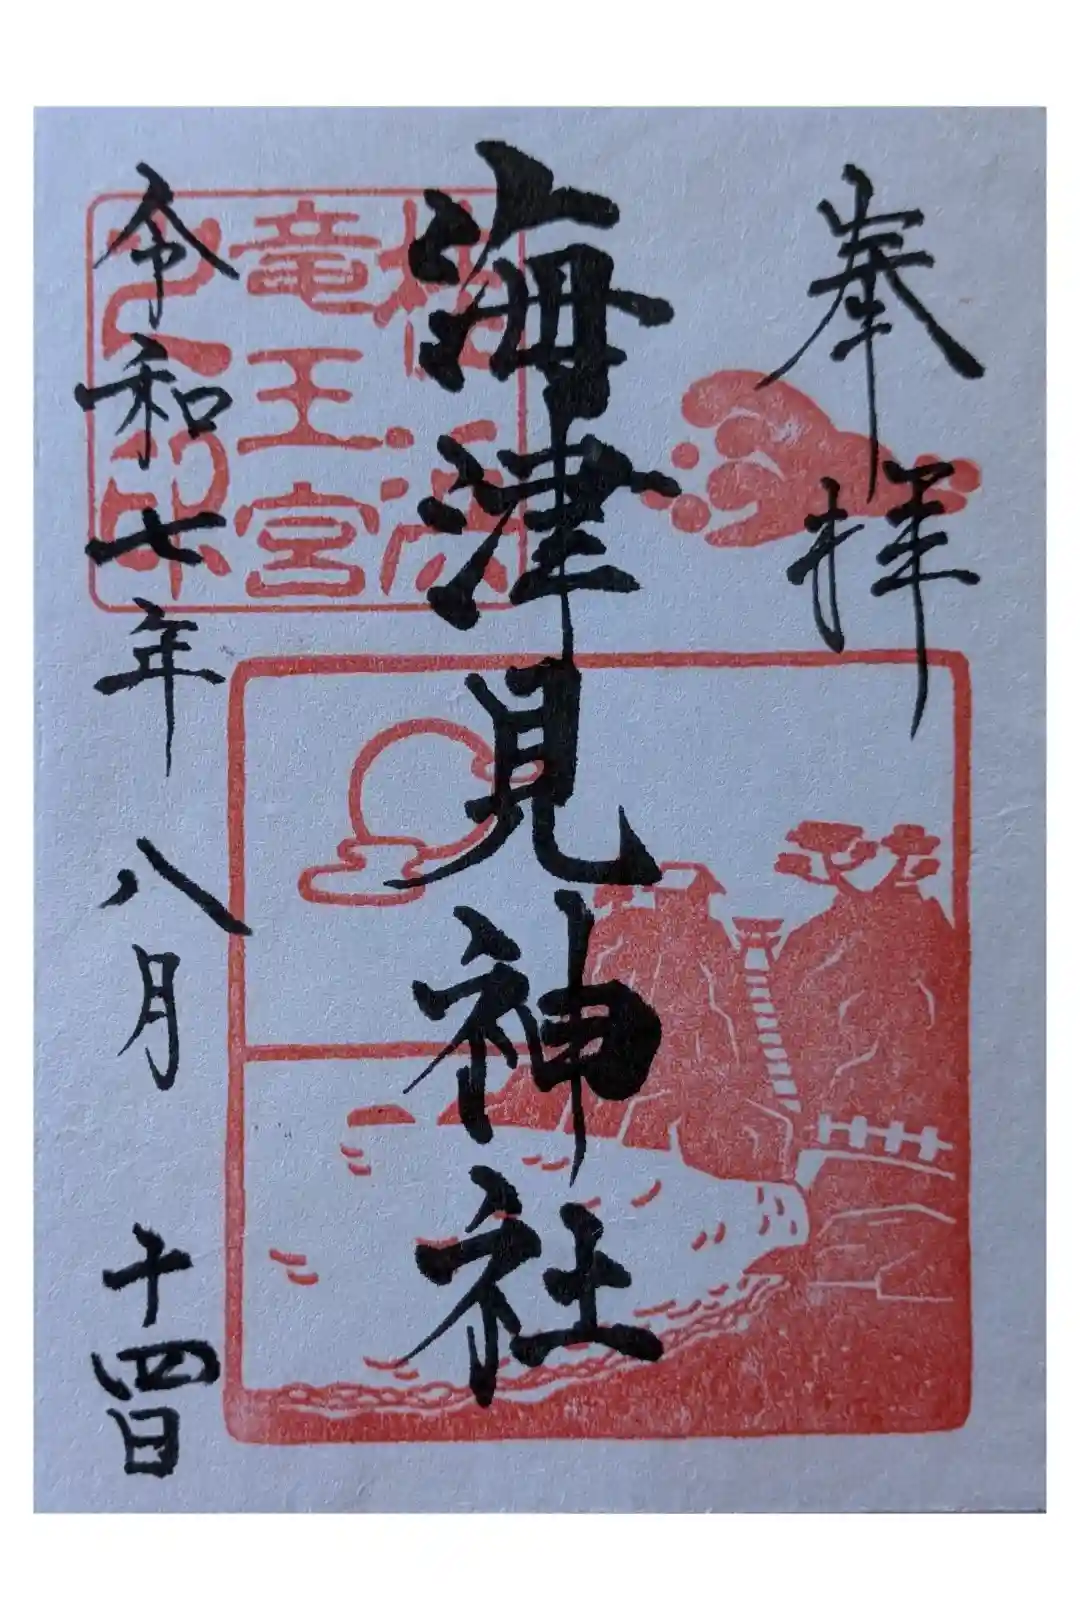 奉拝
海津見神社
桂浜
竜王宮
之印
令和七年八月十四日